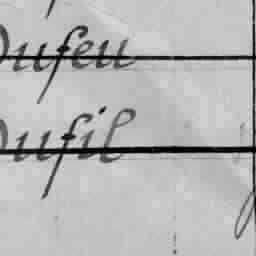 Dufeu
Dufil